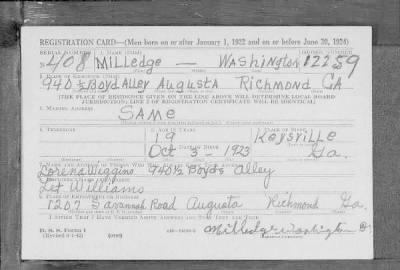 REGISTRATION CARD—(Men born on or after January 1, 1922 and on or before June 30, 1924)
SERIAL NUMBER 1. NAME (Print) ORDER NUMBER
408 Milledge — Washington 12259
2. PLACE OF RESIDENCE (Print)
940 ½ Boyd Alley Augusta Richmond GA
[THE PLACE OF RESIDENCE GIVEN ON THE LINE ABOVE WILL DETERMINE LOCAL BOARD
JURISDICTION; LINE 2 OF REGISTRATION CERTIFICATE WILL BE IDENTICAL]
3. MAILING ADDRESS
SAME
4. TELEPHONE 5. AGE IN YEARS 6. PLACE OF BIRTH
19 Keysville
DATE OF BIRTH
Oct 3 - 1923 Ga.
7. NAME AND ADDRESS OF PERSON WHO WILL ALWAYS KNOW YOUR ADDRESS
Lorena Wiggins 940½ Boyds Alley
8. EMPLOYER'S NAME AND ADDRESS
Williams
9. PLACE OF EMPLOYMENT OR BUSINESS
1207 Savannah Road Augusta Richmond Ga.
I AFFIRM THAT I HAVE VERIFIED ABOVE ANSWERS AND THAT THEY ARE TRUE.
D. S. S. Form 1
(Revised 6-1-42) (over)
Milledge Washington